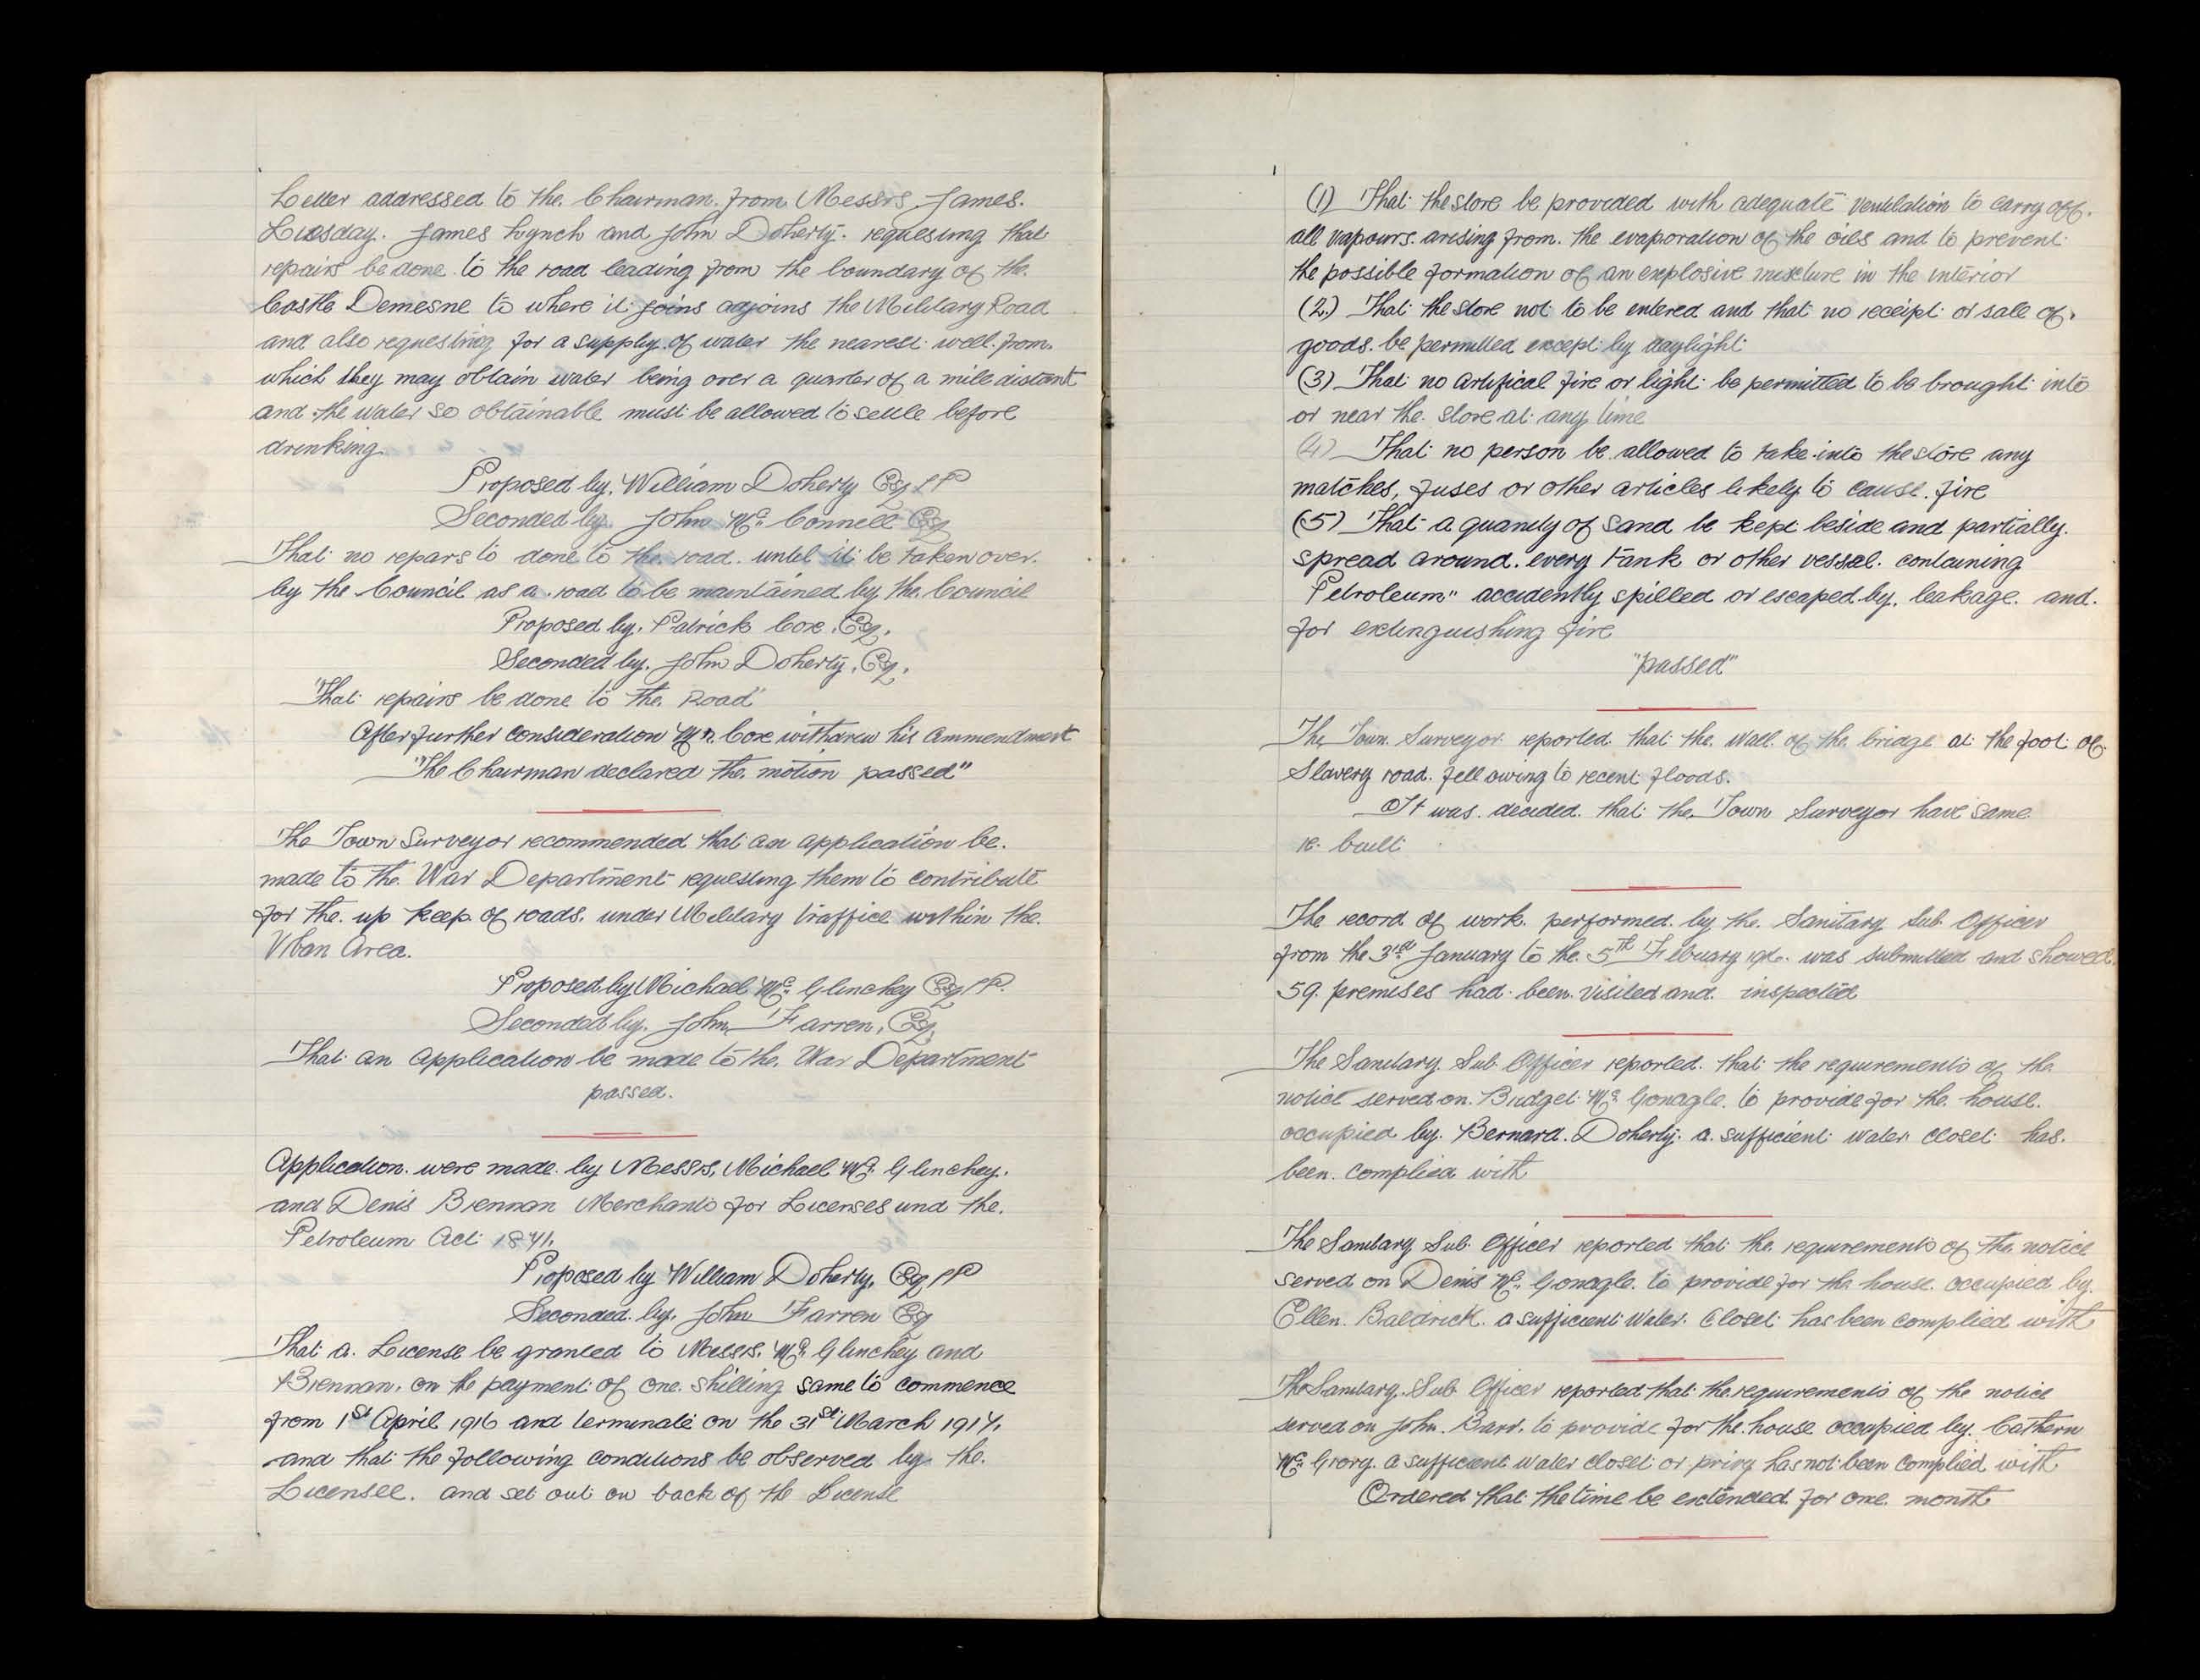 Letter addressed to the Chairman from Messrs James.
Liusday. James Lynch and John Doherty. requesting that
repairs be done to the road leading from the boundary of the
Castle Demesne to where it joins adjoins the Military Road
and also requesting for a supply of water the nearest well from
which they may obtain water being over a quarter of a mile distant
and the water so obtainable must be allowed to settle before
drinking.
Proposed by, William Doherty Esq JP
Seconded by. John Mc Connell Esq
That no repars to done to the road until it be taken over
by the Council as a road to be maintained by the Council
Proposed by, Patrick Coxe, Esq.
Seconded by, John Doherty, Esq.
"That repairs be done to the Road"
After further consideration Mr. Coxe withdrew his Ammendment
"The Chairman declared the motion passed"
The Town Surveyor recommended that an application be
made to the War Department requesting them to contribute
for the up keep of roads, under Military traffice within the
Urban Area.
Proposed by Michael Mc Glinchey Esq JP.
Seconded by, John Farren, Esq.
That an Application be made to the War Department
passed.
Application were made by Messrs, Michael Mc Glinchey.
and Denis Brennan Merchants for Licenses und the
Petroleum Act 1871.
Proposed by William Doherty, Esq JP
Seconded by, John Farren Esq
That a License be granted to Messrs. Mc Glinchey and
Brennan, on the payment of one shilling same to commence
from 1st April 1916 and terminate on the 31st March 1917.
and that the following conditions be observed by the
Licensee. and set out on back of the License
(1) That the store be provided with adequate ventilation to carry off.
all vapours arising from the evaporation of the oils and to prevent
the possible formation of an explosive mixture in the interior
(2.) That the store not to be entered and that no receipt or sale of
goods be permitted except by daylight
(3) That no artifical fire or light be permitted to be brought into
or near the store at any time
(4) That no person be allowed to take into the store any
matches, fuses or other articles likely to cause fire
(5) That a quanity of sand be kept beside and partially
spread around every tank or other vessel containing
Petroleum" accidently spilled or escaped by leakage and
for extinguishing fire
"passed"
The Town Surveyor reported that the wall of the bridge at the foot of
Slavery road fell owing to recent floods.
It was decided that the Town Surveyor have same
re-built
The record of work performed by the Sanitary Sub Officer
from the 31st January to the 5th Febuary was submitted and showed
59 premises had been visited and inspected
The Sanitary Sub Officer reported that the requirements of the
notice served on Bridget Mc Gonagle to provide for the house
occupied by Bernard Doherty a sufficient water closet has
been complied with
The Sanitary Sub Officer reported that the requirements of the notice
served on Denis Mc Gonagle to provide for the house occupied by
Ellen Baldrick a sufficient Water Closet has been complied with
The Sanitary Sub Officer reported that the requirements of the notice
served on John Barr. to provide for the house occupied by Cathern
Mc Grory a sufficient water closet or privy has not been complied with
Ordered that the time be extended for one month